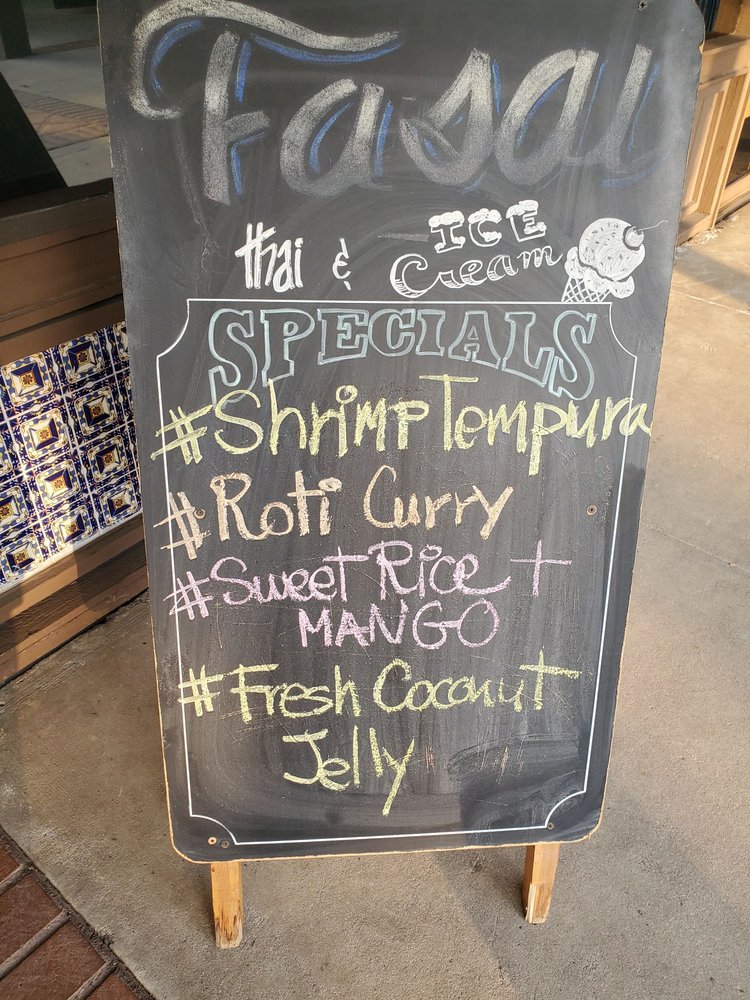 Fasai
thai & ICE
Cream
SPECIALS
#Shrimp Tempura
#Roti Curry
#Sweet Rice +
MANGO
#Fresh Coconut
Jelly